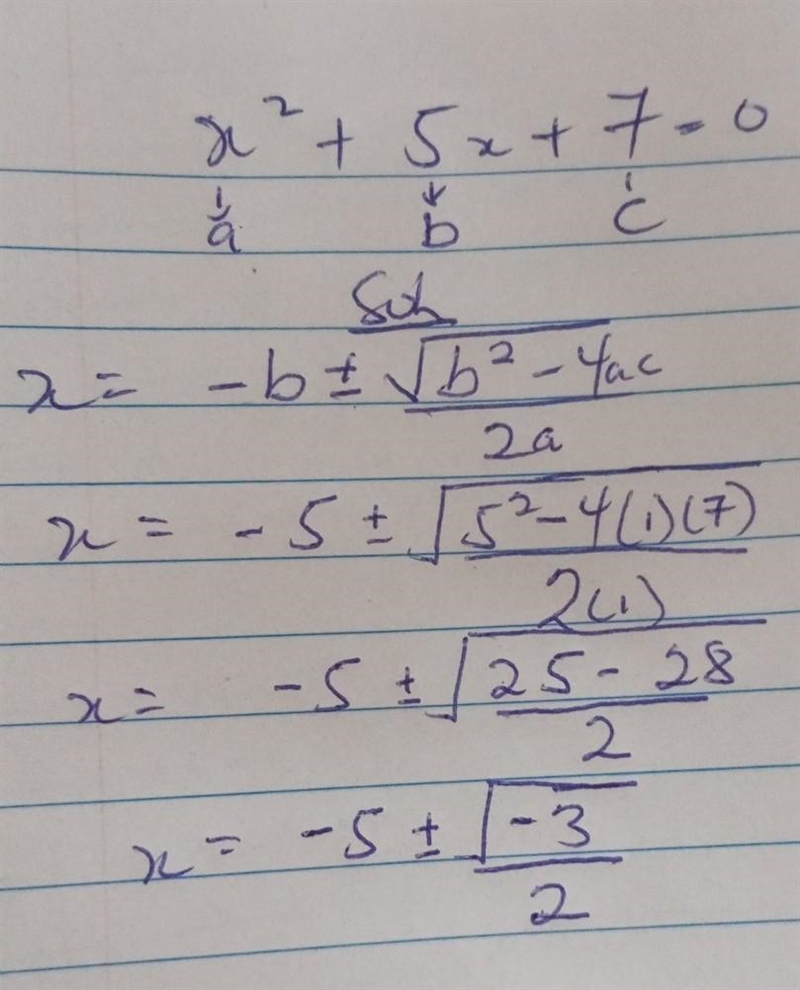 x² + 5x + 7 = 0
a b c
Soln
x = -b ± √b² - 4ac
2a
x = -5 ± √5² - 4(1)(7)
2(1)
x = -5 ± √25 - 28
2
x = -5 ± √-3
2